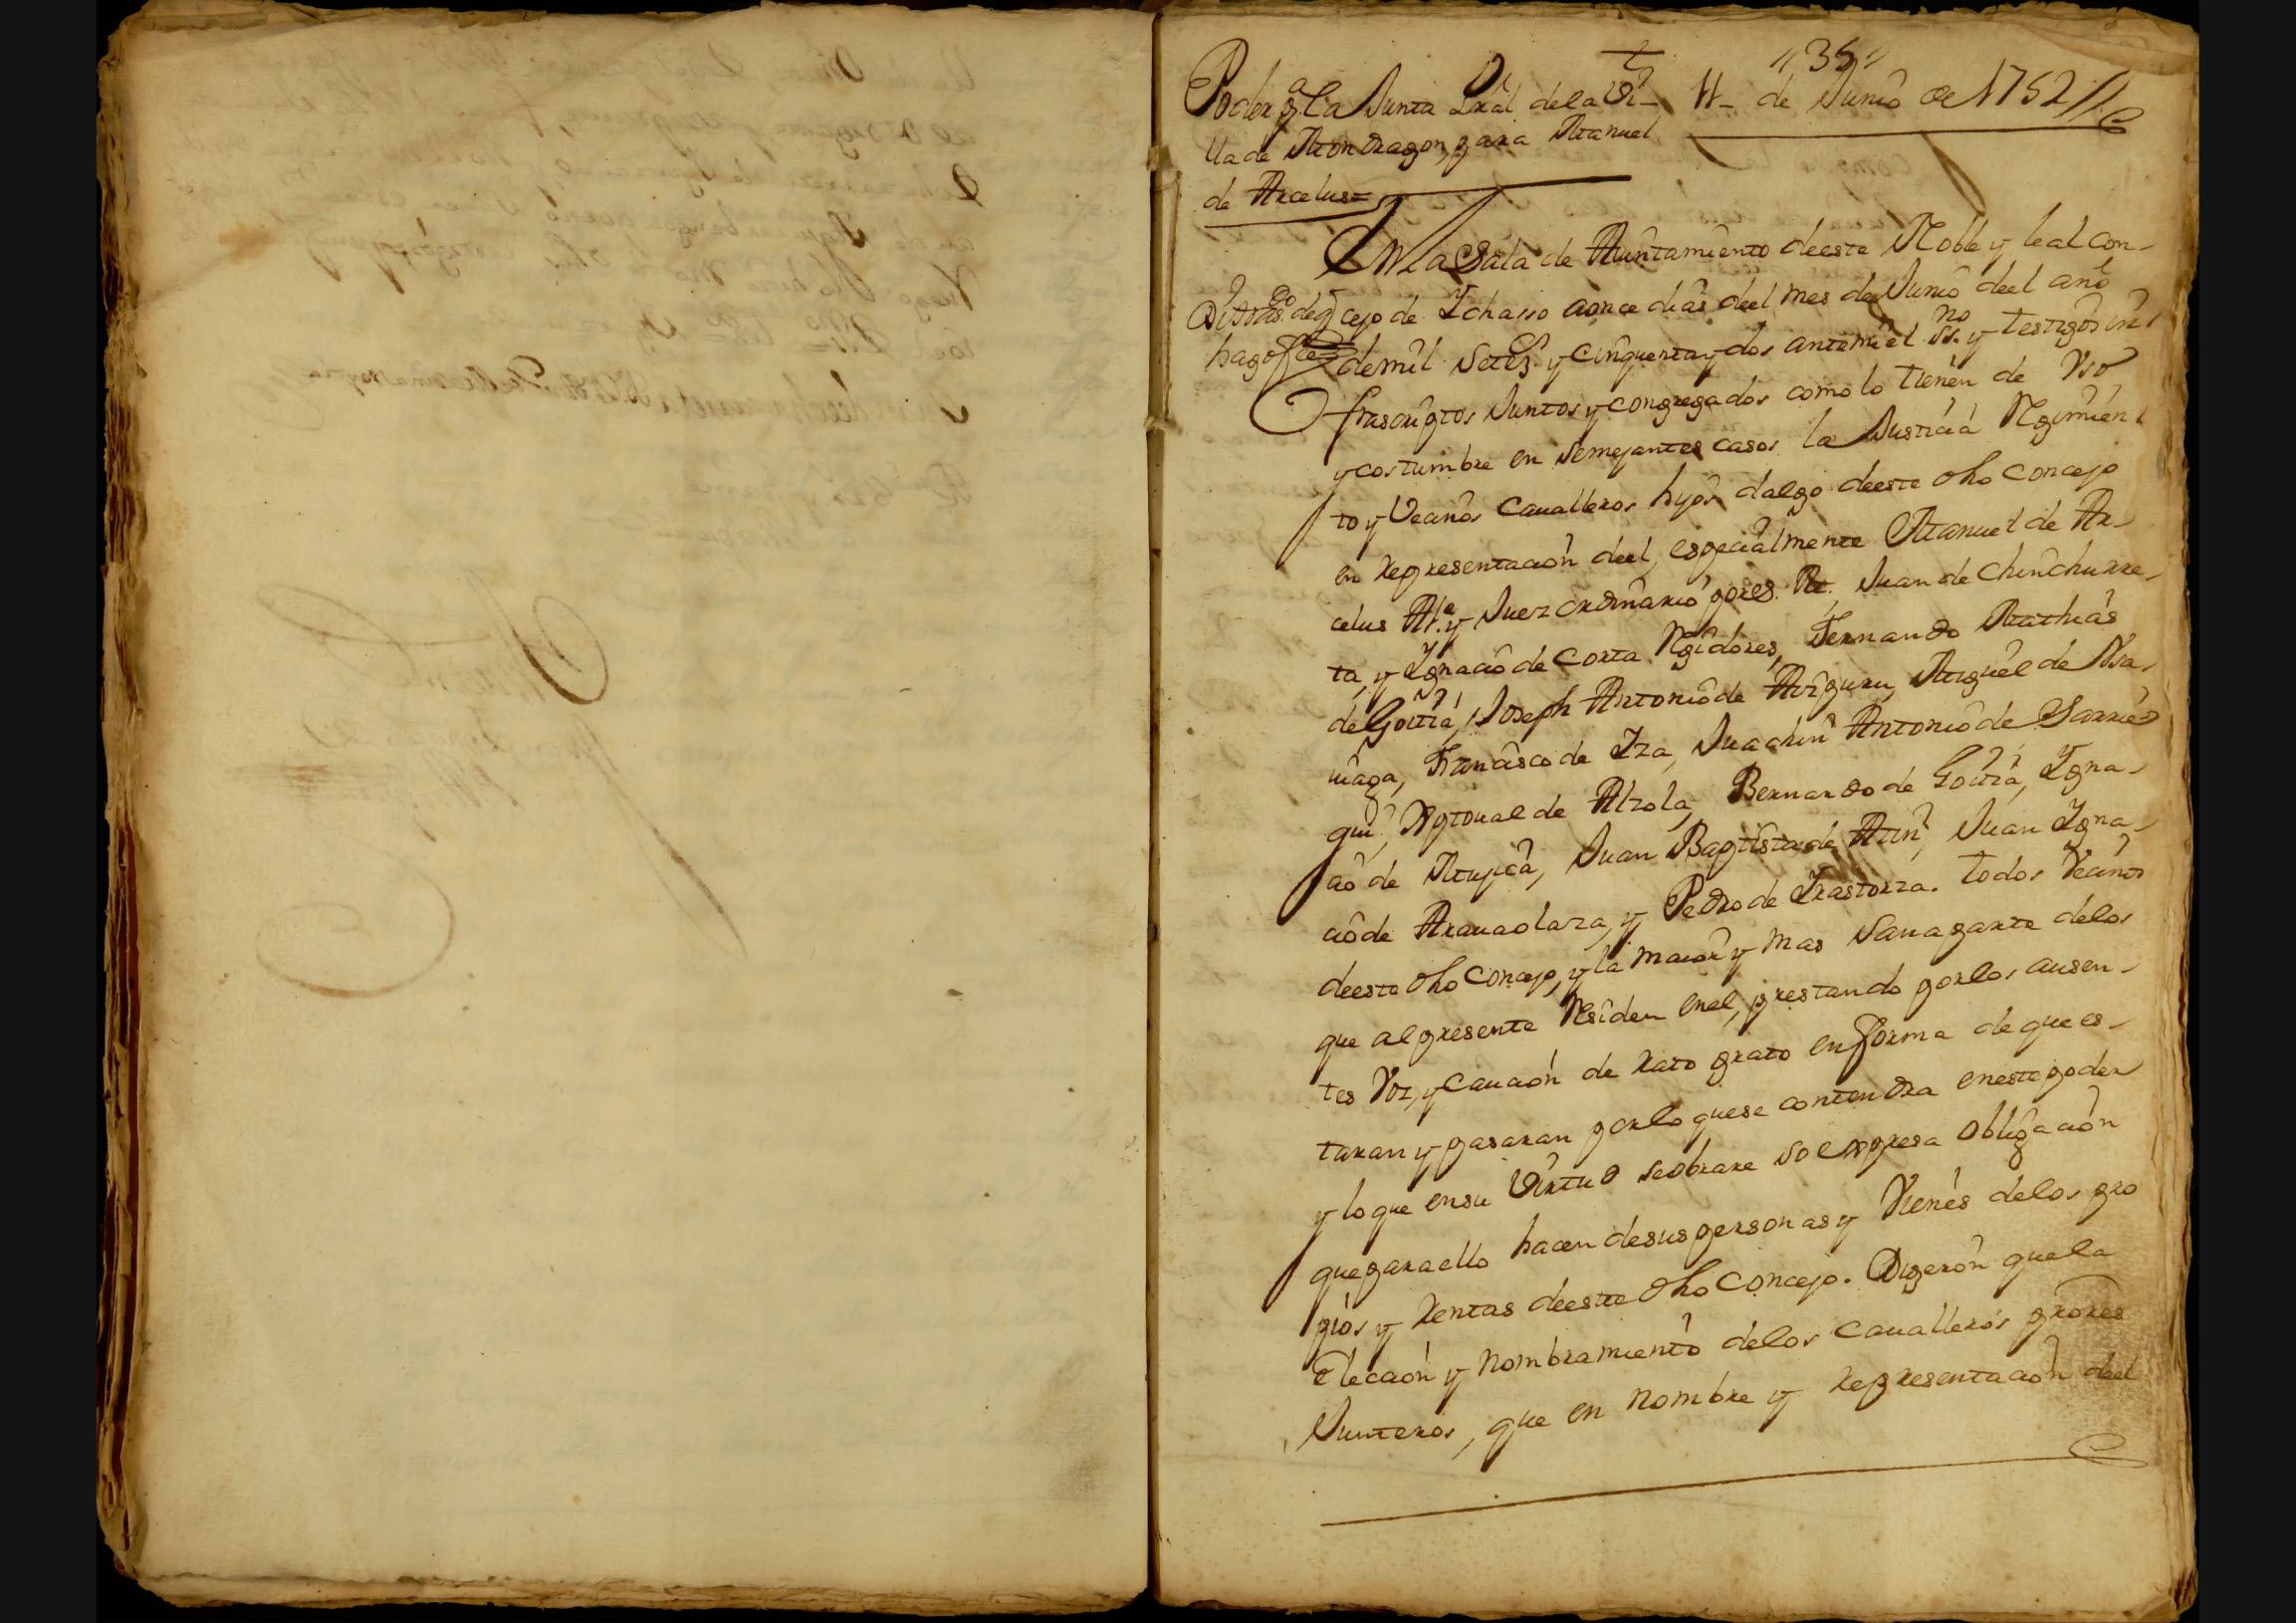 "35"
Poder pª la Junta Gral dela Vi- 11- de Junio de 1752//
lla de Mondragon, para Manuel
de Arcelus=
En La Sala de Aiuntamiento deeste Noble y leal con-
cejo de Ichasso aonce dias deel mes de Junio deel año
hago fee
demil setezs y cinquentaydos antemi el ssno y testigos in-
frascriptos Juntos y congregados como lo tienen de Vso
y costumbre en semejantes casos la Justicia Regimien-
to y Vecinos Caualleros hijos dalgo deeste dho Concejo
en representacion deel, especialmente Manuel de Ar-
celus Alce y Juez ordinario por S. M. Juan de Chinchurre-
ta, y Ignacio de Corta Regidores, Fernando Mathias
de Goitia, Joseph Antonio de Aizpuru, Miguel de Usa-
uiaga, Francisco de Iza, Juachin Antonio de Sarrie
gui, Xptoual de Alzola, Bernardo de Goitia, Igna-
cio de Mujica, Juan Baptista de Atin, Juan Igna-
cio de Arauaolaza, y Pedro de Irastorza. todos Vecinos
deeste dho Concejo, y la maior y mas sana parte delos
que alpresente Residen enel, prestando porlos ausen-
tes Voz, y Caucion de rato grato enforma de que es-
taran y pasaran porlo quese contendra eneste poder
y lo que ensu Virtud seobrare so expresa obligacion
que paraello hacen desus personas y Vienes delos pro
pios y rentas deeste dho Concejo. Digeron quela
Eleccion y nombramiento delos Caualleros prores
Junteros, que en nombre y representacion deel